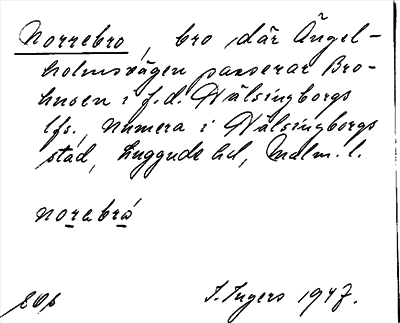 Norrebro, bro där Ängel-
holmsvägen passerar Bro-
husen i f.d. Hälsingborgs
lfs., numera i Hälsingborgs
stad, Luggude hd, Malm. l.
norabro
I. Ingers 1947.